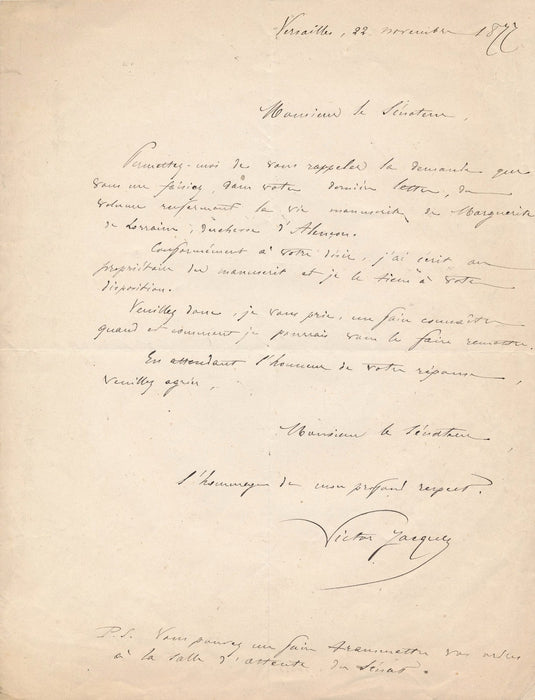 Versailles, 22 novembre 1877
Monsieur le Sénateur,
Permettez-moi de vous rappeler la demande que
vous me faisiez, dans votre dernière lettre, du
volume renfermant la vie manuscrite de Marguerite
de Lorraine, duchesse d'Alençon.
Conformément à votre désir, j'ai écrit au
propriétaire du manuscrit et je le tiens à votre
disposition.
Veuillez donc, je vous prie, me faire connaître
quand et comment je pourrais vous le faire remettre.
En attendant l'honneur de votre réponse,
veuillez agréer,
Monsieur le Sénateur
l'hommage de mon profond respect.
Victor Jacques
P.S. Vous pouvez me faire transmettre vos ordres
à la salle d'attente du Sénat.